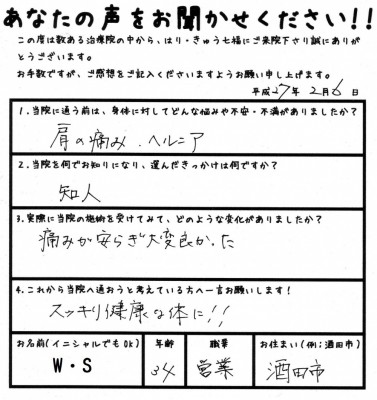 あなたの声をお聞かせください!!
この度は数ある治療院の中から、はり・きゅう七福にご来院下さり誠にありが
とうございます。
お手数ですが、ご感想をご記入くださいますようお願い申し上げます。
平成27年 2月6日
1.当院に通う前は、身体に対してどんな悩みや不安・不満がありましたか?
肩の痛み.ヘルニア
2.当院を何でお知りになり、選んだきっかけは何ですか?
知人
3.実際に当院の施術を受けてみて、どのような変化がありましたか?
痛みが安らぎ大変良かった
4.これから当院へ通おうと考えている方へ一言お願いします!
スッキリ健康な体に!!
お名前(イニシャルでもOK) 年齢 職業 お住まい(例:酒田市)
W・S 34 営業 酒田市